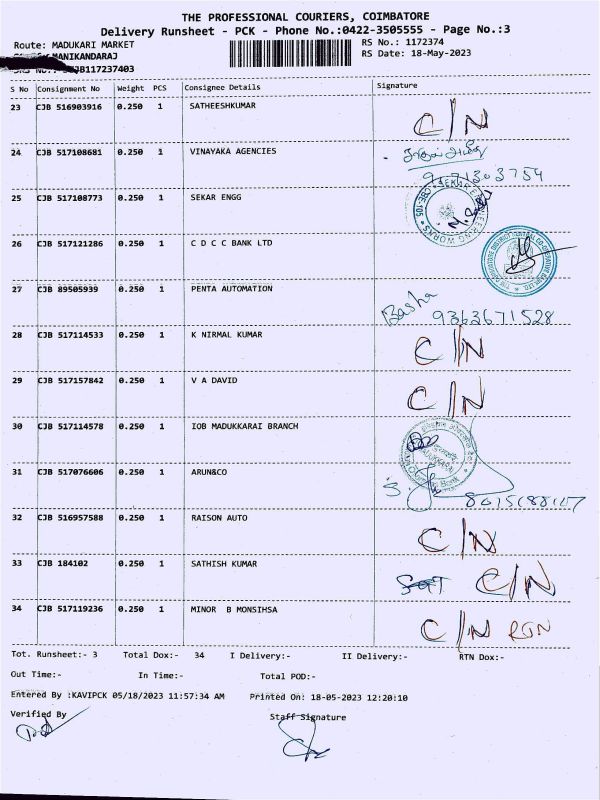 THE PROFESSIONAL COURIERS, COIMBATORE
Delivery Runsheet - PCK - Phone No.:0422-3505555 - Page No.:3
Route: MADUKARI MARKET
RS No.: 1172374
MANIKANDARAJ
RS Date: 18-May-2023
117237403
S No Consignment No Weight PCS Consignee Details Signature
23 CJB 516903916 0.250 1 SATHEESHKUMAR C/N
24 CJB 517108681 0.250 1 VINAYAKA AGENCIES
25 CJB 517108773 0.250 1 SEKAR ENGG
26 CJB 517121286 0.250 1 C D C C BANK LTD
27 CJB 89505939 0.250 1 PENTA AUTOMATION Basha 9363671528
28 CJB 517114533 0.250 1 K NIRMAL KUMAR C/N
29 CJB 517157842 0.250 1 V A DAVID C/N
30 CJB 517114578 0.250 1 IOB MADUKKARAI BRANCH
31 CJB 517076606 0.250 1 ARUN&CO
32 CJB 516957588 0.250 1 RAISON AUTO C/N
33 CJB 184102 0.250 1 SATHISH KUMAR C/N
34 CJB 517119236 0.250 1 MINOR B MONSIHSA C/N RTN
Tot. Runsheet:- 3 Total Dox:- 34 I Delivery:- II Delivery:- RTN Dox:-
Out Time:- In Time:- Total POD:-
Entered By :KAVIPCK 05/18/2023 11:57:34 AM Printed On: 18-05-2023 12:20:10
Verified By Staff Signature